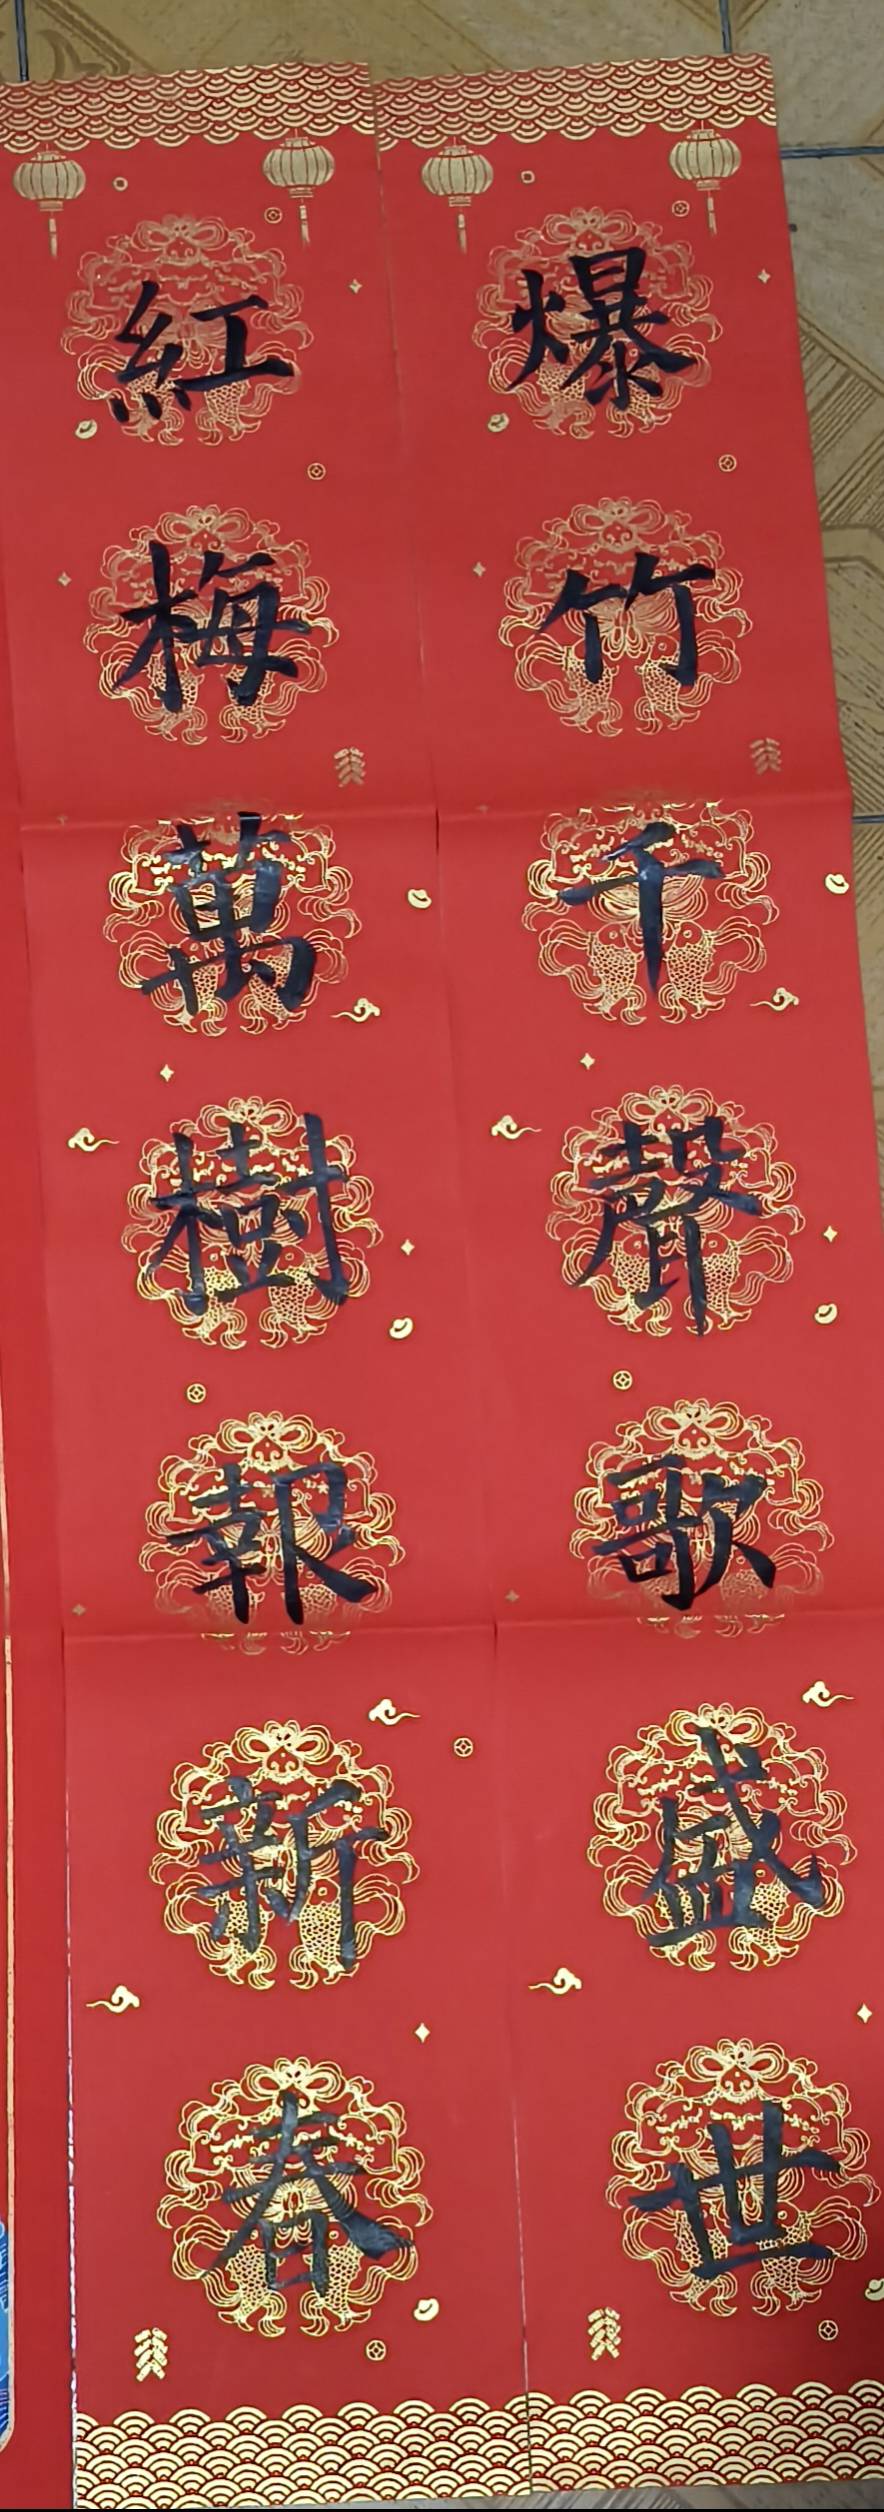 爆竹千聲歌盛世
紅梅萬樹報新春